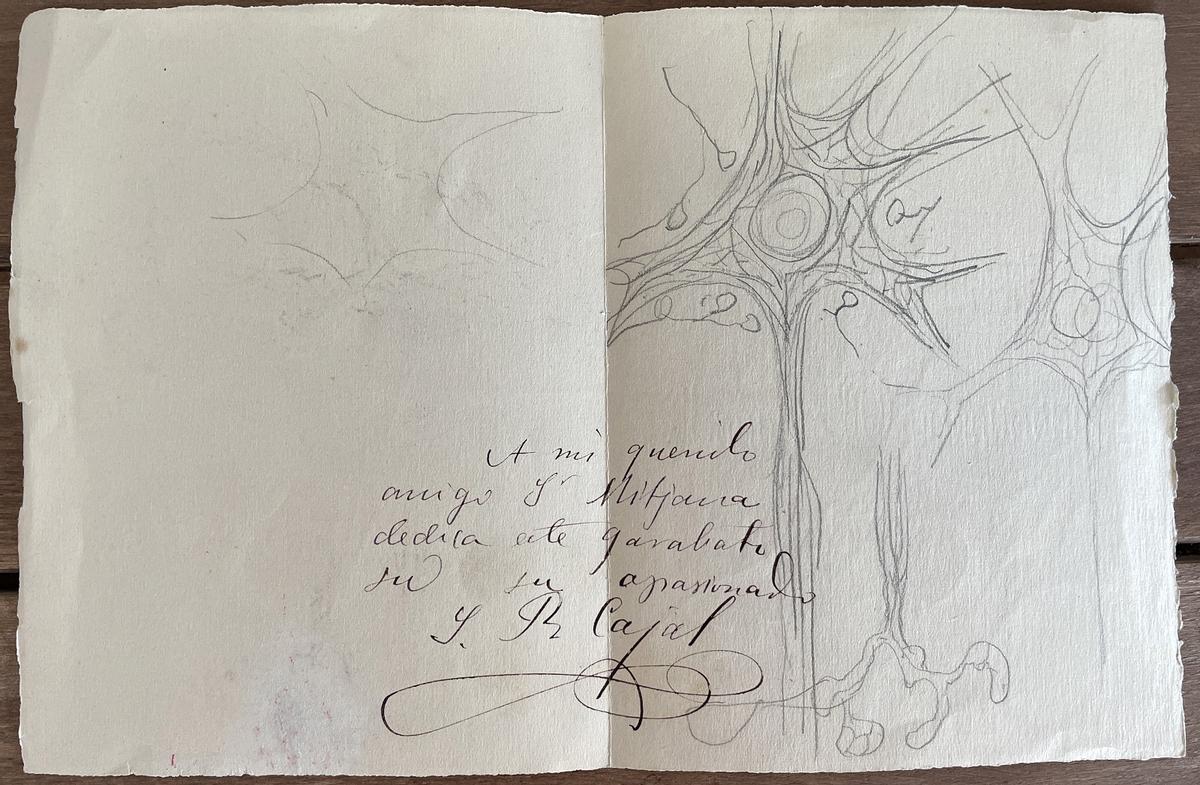 A mi querido
amigo Sr Mitjana
dedica este garabato
su su apasionado
S. R. Cajal